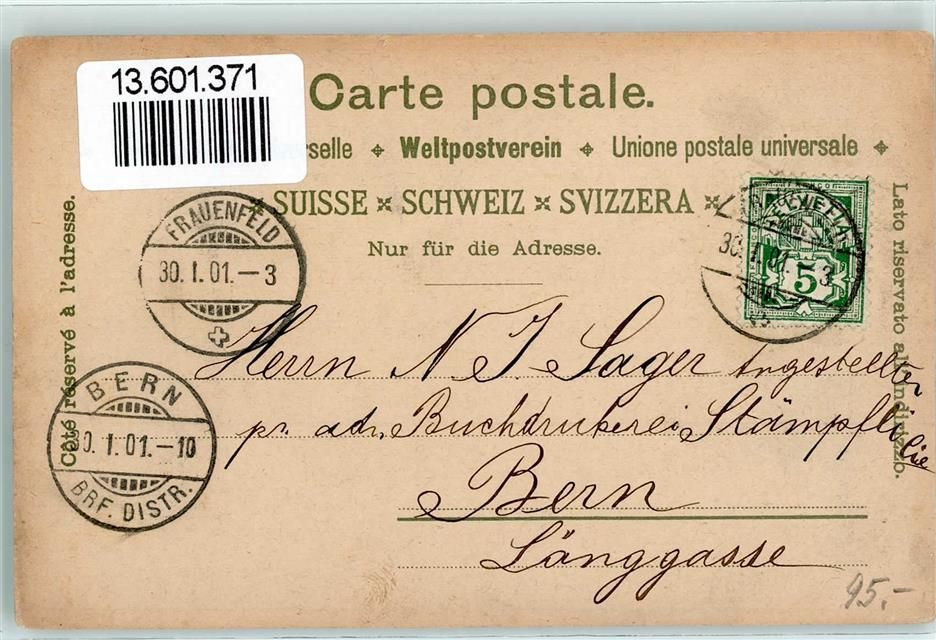 13.601.371
Carte postale.
rselle Weltpostverein Unione postale universale
SUISSE SCHWEIZ SVIZZERA
Nur für die Adresse.
Côté réservé à l'adresse.
Lato riservato all'indirizzo.
FRAUENFELD
30.I.01.-3
HELVETIA
30.I.01.-3
5
BERN
30.I.01.-10
BRF. DISTR.
Herrn N J. Sager Angestellter
pr. adr. Buchdruckerei Stämpfli
Bern
Länggasse
95.-